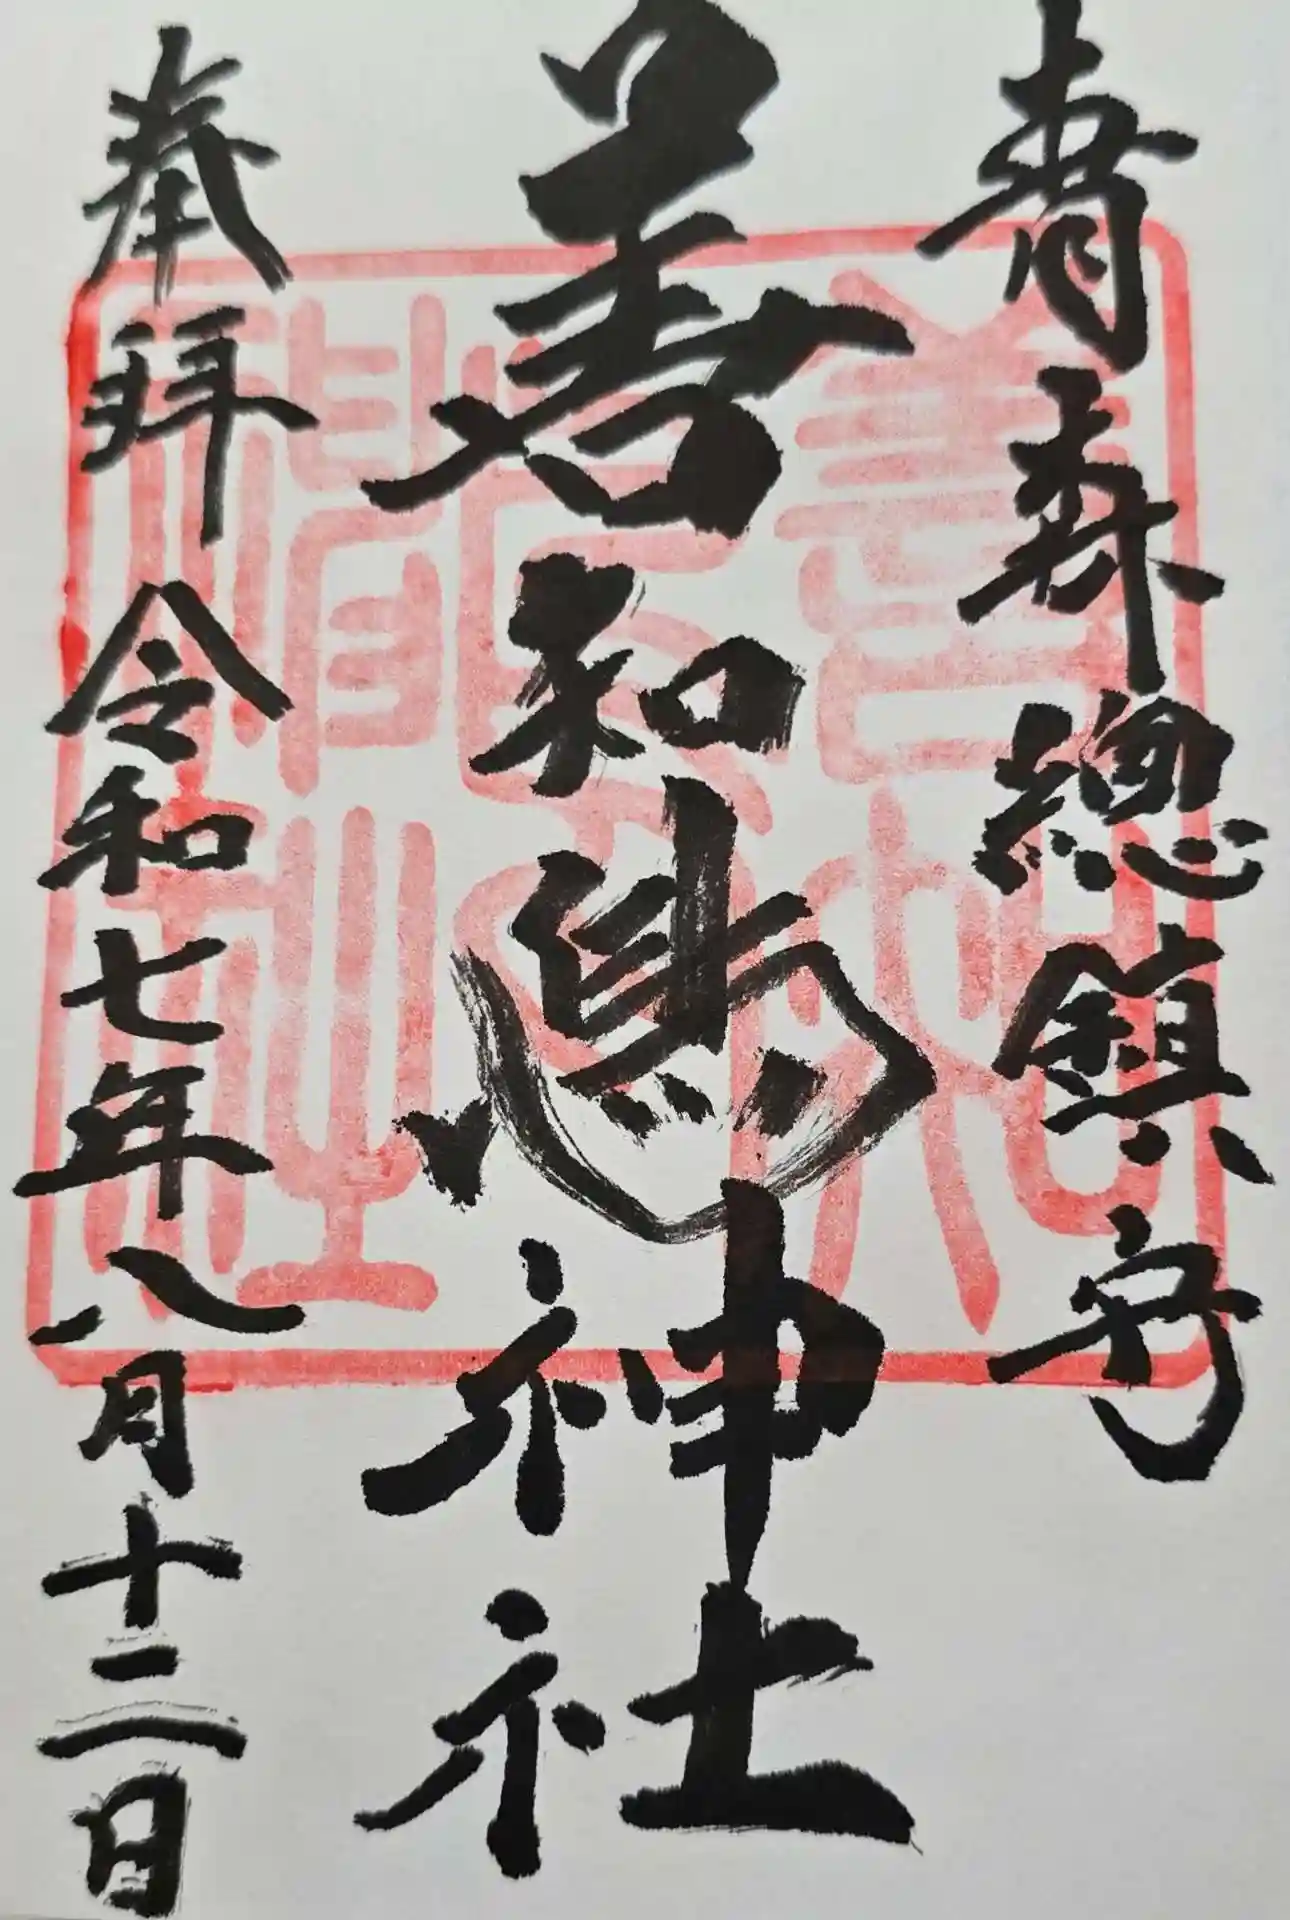 青森總鎮守
善知鳥神社
奉拜 令和七年八月十二日
善知鳥神社